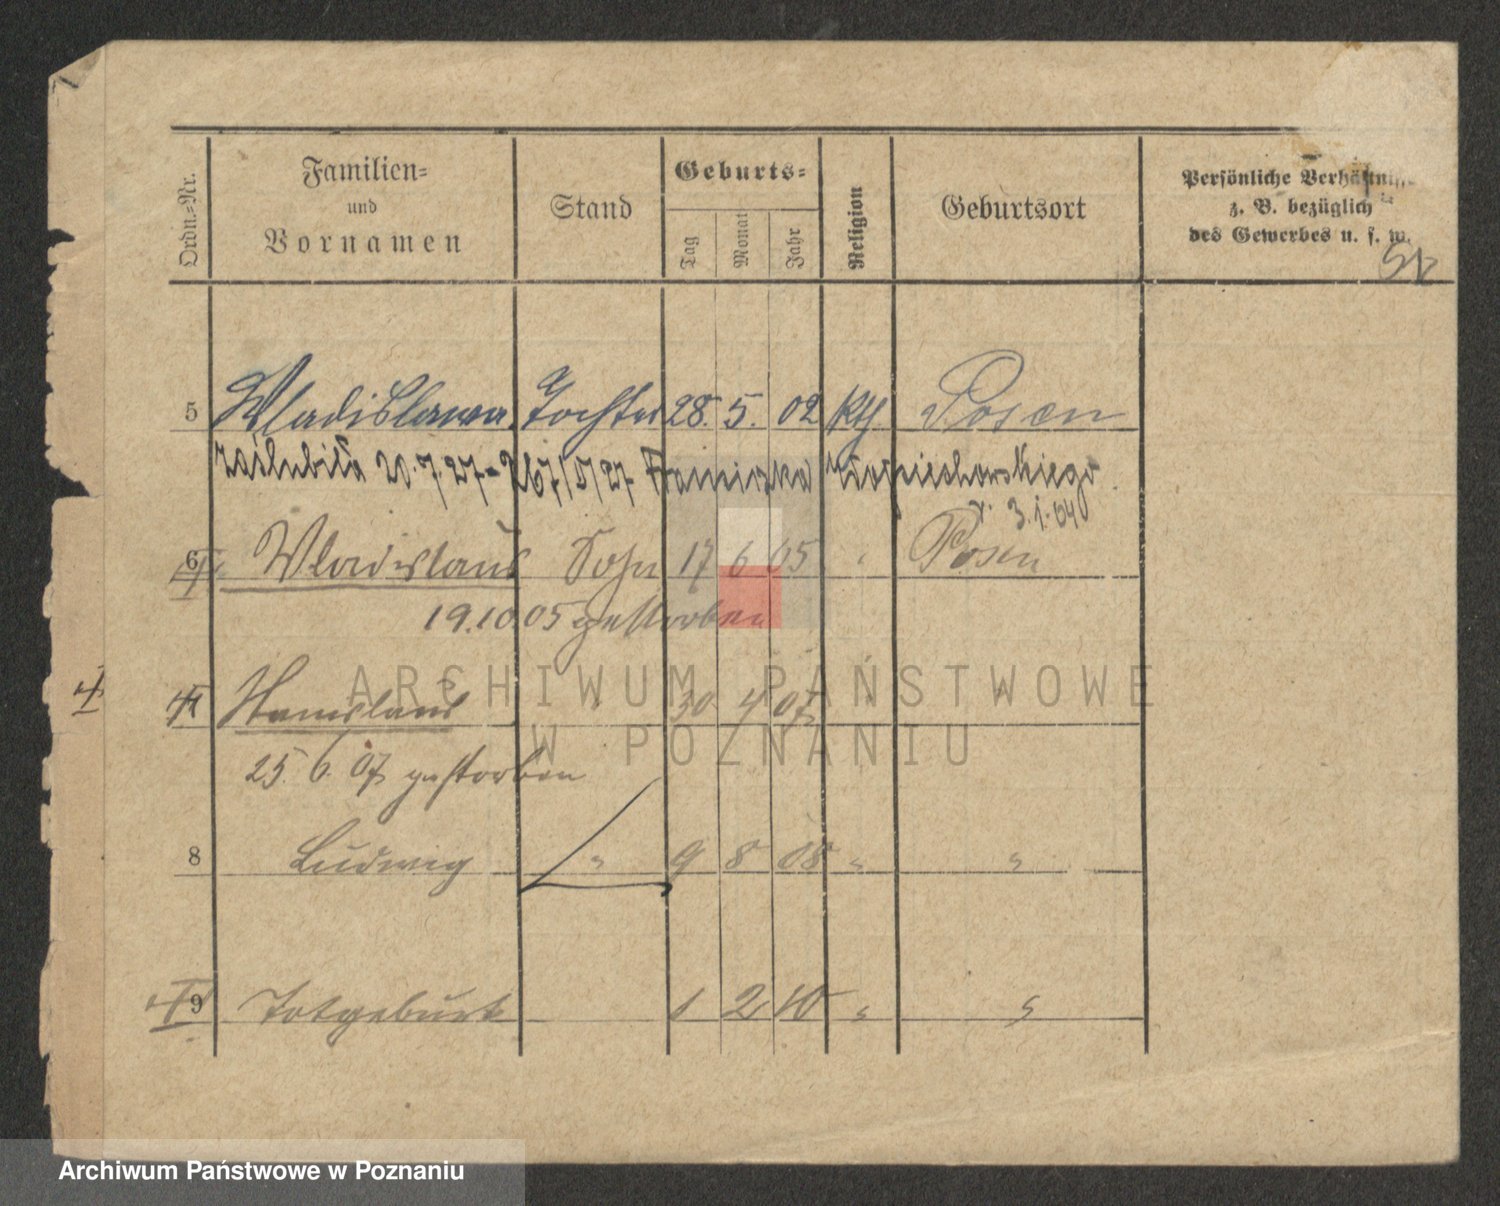 Ordn.=Nr.
Familien=
und
Vornamen
Stand
Geburts=
Tag
Monat
Jahr
Religion
Geburtsort
Persönliche Verhältnisse
z. B. bezüglich
des Gewerbes u. s. w.
5 Wladislawa Tochter 28. 5. 02 kth Posen
zaślubiła 20.7.27 - 267/5/27 Franciszka Wojciechowskiego
3.1.04
6 Wladislaus Sohn 17 6 05 " Posen
19.10.05 gestorben
ARCHIWUM PAŃSTWOWE
W POZNANIU
Stanislaus " 30 4 07
25. 6. 07 gestorben
8 Ludwig " 9 8 08 " "
9 Totgeburt 1 2 10 " "
Archiwum Państwowe w Poznaniu